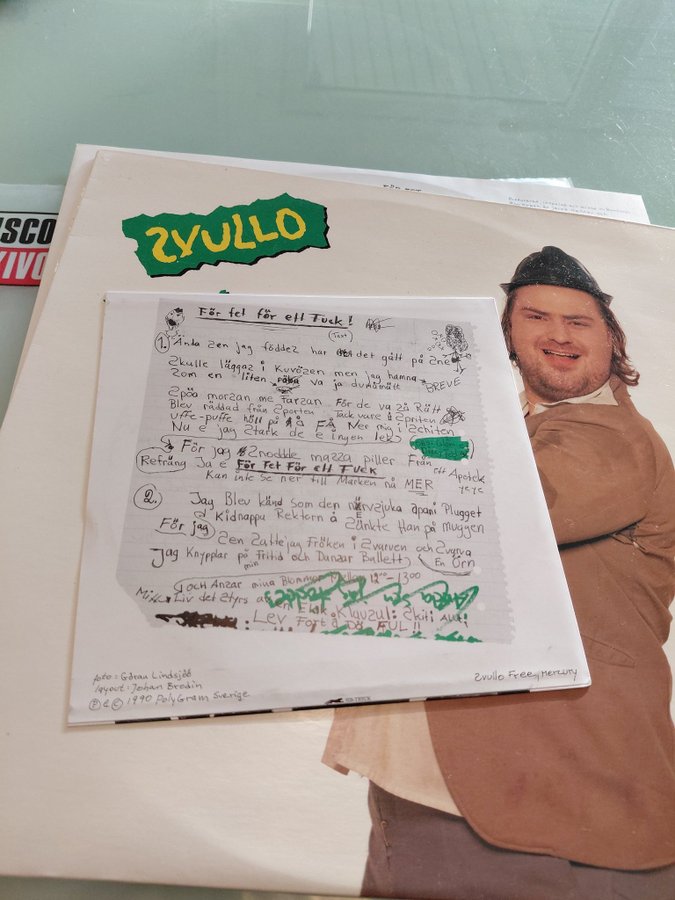 ZVULLO
ISCO
VIVO
För fet för ett Fuck!
(Text)
1. Ända Zen jag föddez har det gått på Zne
Zkulle läggaz i Kuvözen men jag hamna
BREVE
Zom en liten va ja dumdmätt
Zpöa morzan me Farzan För de va Zå Rätt
Blev räddad från Zporten Tack vare Zpriten
Uffe-puffe höll på å FÅ Ner mig i Zchiten
Nu e jag Ztark de e ingen lek
För jag Znodde mazza piller Från ett Apotek
Refräng Ja e För Fet För ett Fuck
ye ye
Kan inte Se ner till Marken nå MER
2. Jag Blev känd Som den närvsjuka apan i Plugget
Kidnappa Rektorn å Zänkte Han på Muggen
För jag
Zen Zatte jag Fröken i Zvarven och Zvarva
En Orn
Jag Knypplar på min Fritid och Danzar Ballett
OCH Anzar mina Blommor Mellan 12⁰⁰-1300
Liv det Ztyrs a en Elak Klauzul: Zkit i Allt!
Lev Fort å Dö FUL!!
foto: Göran Lindsjöö
layout: Johan Brodin
Ⓟ & © 1990 PolyGram Sverige
Zvullo Free, Mercury